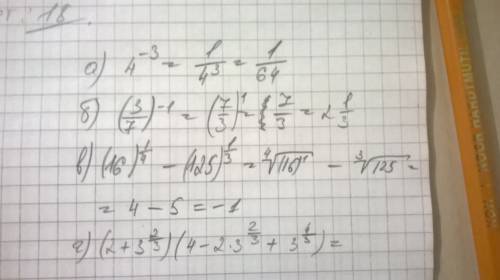 18.
а) 4^{-3} = \frac{1}{4^3} = \frac{1}{64}
б) (\frac{3}{7})^{-1} = (\frac{7}{3})^1 = \frac{7}{3} = 2\frac{1}{3}
в) (16)^{\frac{1}{4}} - (125)^{\frac{1}{3}} = \sqrt[4]{(16)^1} - \sqrt[3]{125} =
= 4 - 5 = -1
г) (2 + 3^{\frac{2}{3}})(4 - 2 \cdot 3^{\frac{2}{3}} + 3^{\frac{4}{3}}) =